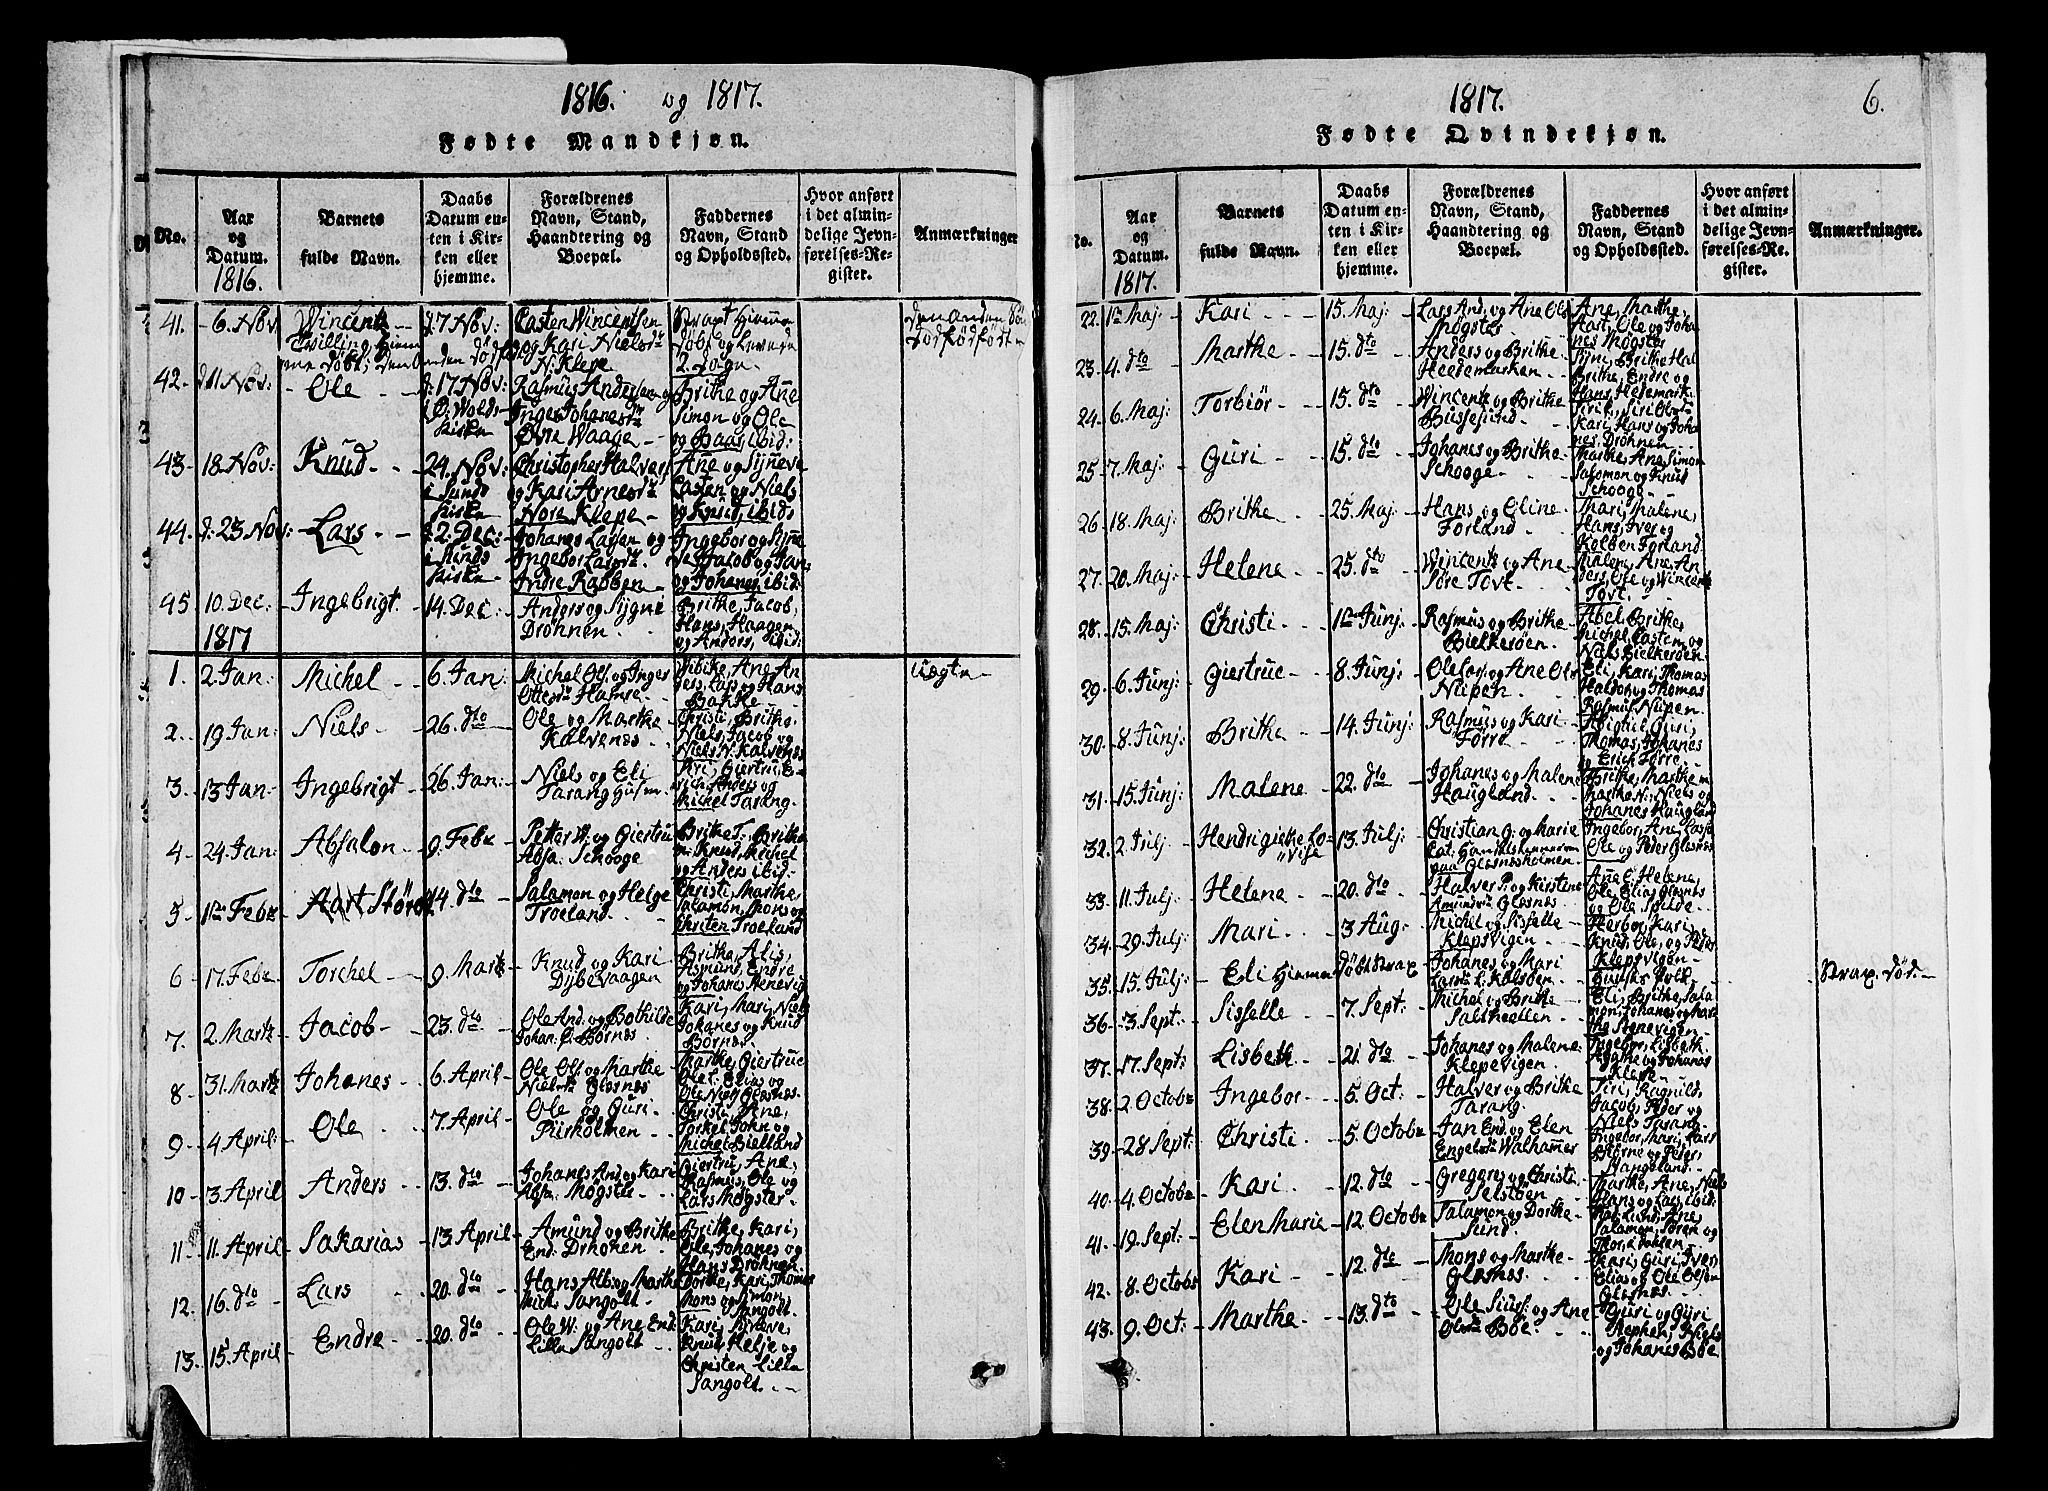 1816. og 1817.
Fødte Mandkjøn.
No.
Aar
og
Datum.
1816.
Barnets
fulde Navn.
Daabs
Datum en-
ten i Kir-
ken eller
hjemme.
Forældrenes
Navn, Stand,
Haandtering og
Boepæl.
Faddernes
Navn, Stand
og Opholdssted.
Hvor anført
i det almin-
delige Jevn-
førelses-Re-
gister.
Anmærkninger
41. 6. Nov Wincentz d. 7 Nov: Casten Wincentsen
og Kari Nielsdr
N. Klepe
2. Dage
42. d. 11 Nov: Ole d. 17 Nov: Rasmus Andersen og
Inger Johanesdr
Øvre Waage
Brithe og Ane
Simon og Ole
og Baar, ibid:
43 18. Nov: Knud 24. Nov: Christopher Halvers
i Sund
Kirke
og Kari Arnesdr
Nore Klepe
Ane og Synneve
Casten og Niels
og Knud, ibid:
44. d. 23 Nov: Lars d. 2. Dec: Johanes Larsen og
i Sunds
Kirke
Ingebor Larsdr
Indre Rabben
Ingebor og Synne
ve, Jacob og Jan
og Johanes, ibid:
45 10. Dec: Ingebrigt 14. Dec: Anders og Sygne
Dröhnen
Brithe, Jacob,
Hans, Haagen
og Anders, ibid:
1817
1. 2 Jan: Michel 6. Jan: Michel Ols. og Inger
Ottersdr Hamre
Bakke
Uægte
2. 19 Jan: Niels 26. dto Ole og Marthe
Kalvenæs
Christi, Brithe,
Niels, Jacob og
Niels N. Kalvenæs
3. 13 Jan: Ingebrigt 26 Jan: Niels og Eli
Tarang Husm
Kri, Giertru, E-
rich Anders og
Michel Tarang.
4 24 Jan: Absalon 9. Febr Petter og Giertru
Absa. Schooge
Knud, Michel
og Anders ibid:
5 1ste Febr Aart Störch 14. dto Salamon og Helge
Troeland
Christi, Marthe,
Salamon, Mons og
Christen Troeland
6 17. Febr Torchel 9. Martz Knud og Kari
Dybevaagen
Brithe, Alis,
Asmund, Endre
og Johanes Stenevig
7. 2. Martz Jacob 23. dto Ole And. og Bothilde
Johan. Börnæs
Kari, Mari, Niels
Johanes og Knud
Börnæs
8 31. Martz Johanes 6. April Ole Ols. og Marthe
Nielsdr Glesnæs
Marthe, Giertrue
Ole, Elias og
Ole Niels Glesnæs
9 4. April: Ole 7. April Ole og Guri
Piirholmen
Christi, Ane,
Torkel, John og
Michel Bielland
10 3. April Anders 13. dto Johanes And. og Kari
Absa. Mögster
Giertru, Ane,
Rasmus, Ole og
Lars Mögster
11 11. April Sakarias 13 April Amund og Brithe
End. Dröhnen
Brithe, Kari,
Ole, Johanes og
Hans Dröhnen
12. 16. dto Lars 20. dto Hans Alb. og Marthe
Mich: Sangolt
Dorthe, Kari, Thomas
Mons og Simon,
Sangolt.
13. 15. April Endre 20. dto Ole W. og Ane End.
Lille Sangolt
Kari, Syneve,
Knud, Helje og
Christen Lille
Sangolt.
1817. 6.
Fødte Qvindekjøn.
No.
Aar
og
Datum.
1817.
Barnets
fulde Navn.
Daabs
Datum en-
ten i Kir-
ken eller
hjemme.
Forældrenes
Navn, Stand,
Haandtering og
Boepæl.
Faddernes
Navn, Stand
og Opholdssted.
Hvor anført
i det almin-
delige Jevn-
førelses-Re-
gister.
Anmærkninger.
22. 1ste Maj: Kari 15. Maj: Lars And. og Ane Ols
Mögster
Ane, Marthe,
Aart, Ole og Joha-
nes Mögster
23. 4. dto Marthe 15. dto Anders og Brithe
Heedemarken
24. 6. Maj: Torbiör 15. dto Wincentz og Brithe
Bussesund
Kari, Hans og Joha
nes, Dröhnen
25 7. Maj: Guri 15. dto Johanes og Brithe
Schooge
Marthe, Ane, Simon
Salomon og Knud
Schooge
26. 18. Maj: Brithe 25. Maj: Hans og Eline
Forland
Mari, Malene,
Hans, Iver og
Kolben Forland
27. 20. Maj: Helene 25. dto Wincentz og Ane
Söre Tovt
Malene, Ane, An-
ders, Ole og Wincent
Tovt.
28. 15. Maj: Christi 1ste Junj: Rasmus og Brithe
Bielkeröen
Abel, Brithe,
Michel, Casten og
Niels Bielkeröen
29. 6. Junj: Giertrue 8. Junj: Ole Lars. og Ane Ols
Niipen
Eli, Kari, Thomas
Haldor og Thomas
Rasmus Niipen
30. 8. Junj: Brithe 14. Junj: Rasmus og Kari
Förre
Abigael, Guri,
Thomas, Johanes
og Erich Förre
31. 15. Junj: Malene 22. dto Johanes og Malene
Haugland
Brithe, Marthe M.
Marthe N., Niels og
Johanes Haugland
32. 2. Julj: Hendrigiethe Lo-
vise 13. Julj: Christian G. og Marie
paa Glesnæsholmen
Ingebor, Ane, Lasse
Ole og Peder Glesnæs
33. 11. Julj: Helene 20. dto Halver P. og Kirstene
Amundsdr Glesnæs
Ane E. Helene,
Ole, Elias Glesnæs
og Ole Spilde
34. 29. Julj: Mari 3 Aug: Michel og Sisselle
Klepsvigen
Herbor, Kari,
Knud, Ole, og Peder
Klepsvigen
35. 15. Julj: Eli Hjemme döbt Strax Johanes og Mari
Huusets Folk
Strax död.
36. 3. Sept: Sisselle 7. Sept: Michel og Brithe
Saltkiellen
Eli, Brithe, Sala
mon, Johanes og Mar
the Stenevigen
37. 17. Sept: Lisbeth 21. dto Johanes og Malene
Klepevigen
Ingebor, Lisbeth
Agathe og Johanes
Klepe
38. 2. Octobr Ingebor 5. Oct: Halver og Brithe
Tarang
Siri, Ragnild,
Jacob, Peder og
Niels Tarang
39. 28 Sept: Christi 5. Octobr Jan End. og Elen
Engelsdr Walhammer
Ingebor, Mari, Lars
Störne og Peter,
Hangeland
40. 4. Octobr Kari 12. dto Gregers og Christi
Selstöen
Marthe, Ane, Niels
Hans og Lars, ibid:
41. 19. Sept: Elen Maria 12. Octobr Salamon og Dorthe
Sund
Salamon, Sören og
42. 8. Octobr Kari 12. dto Mons og Marthe
Glesnæs
Kari, Guri, Iver,
Elias og Ole Olsen
Glesnæs.
43. 9. Oct: Marthe 13. dto Ole Siurs. og Ane
Olsdr Böe
Guri og Guri
Stephen, Niels
og Johanes Böe